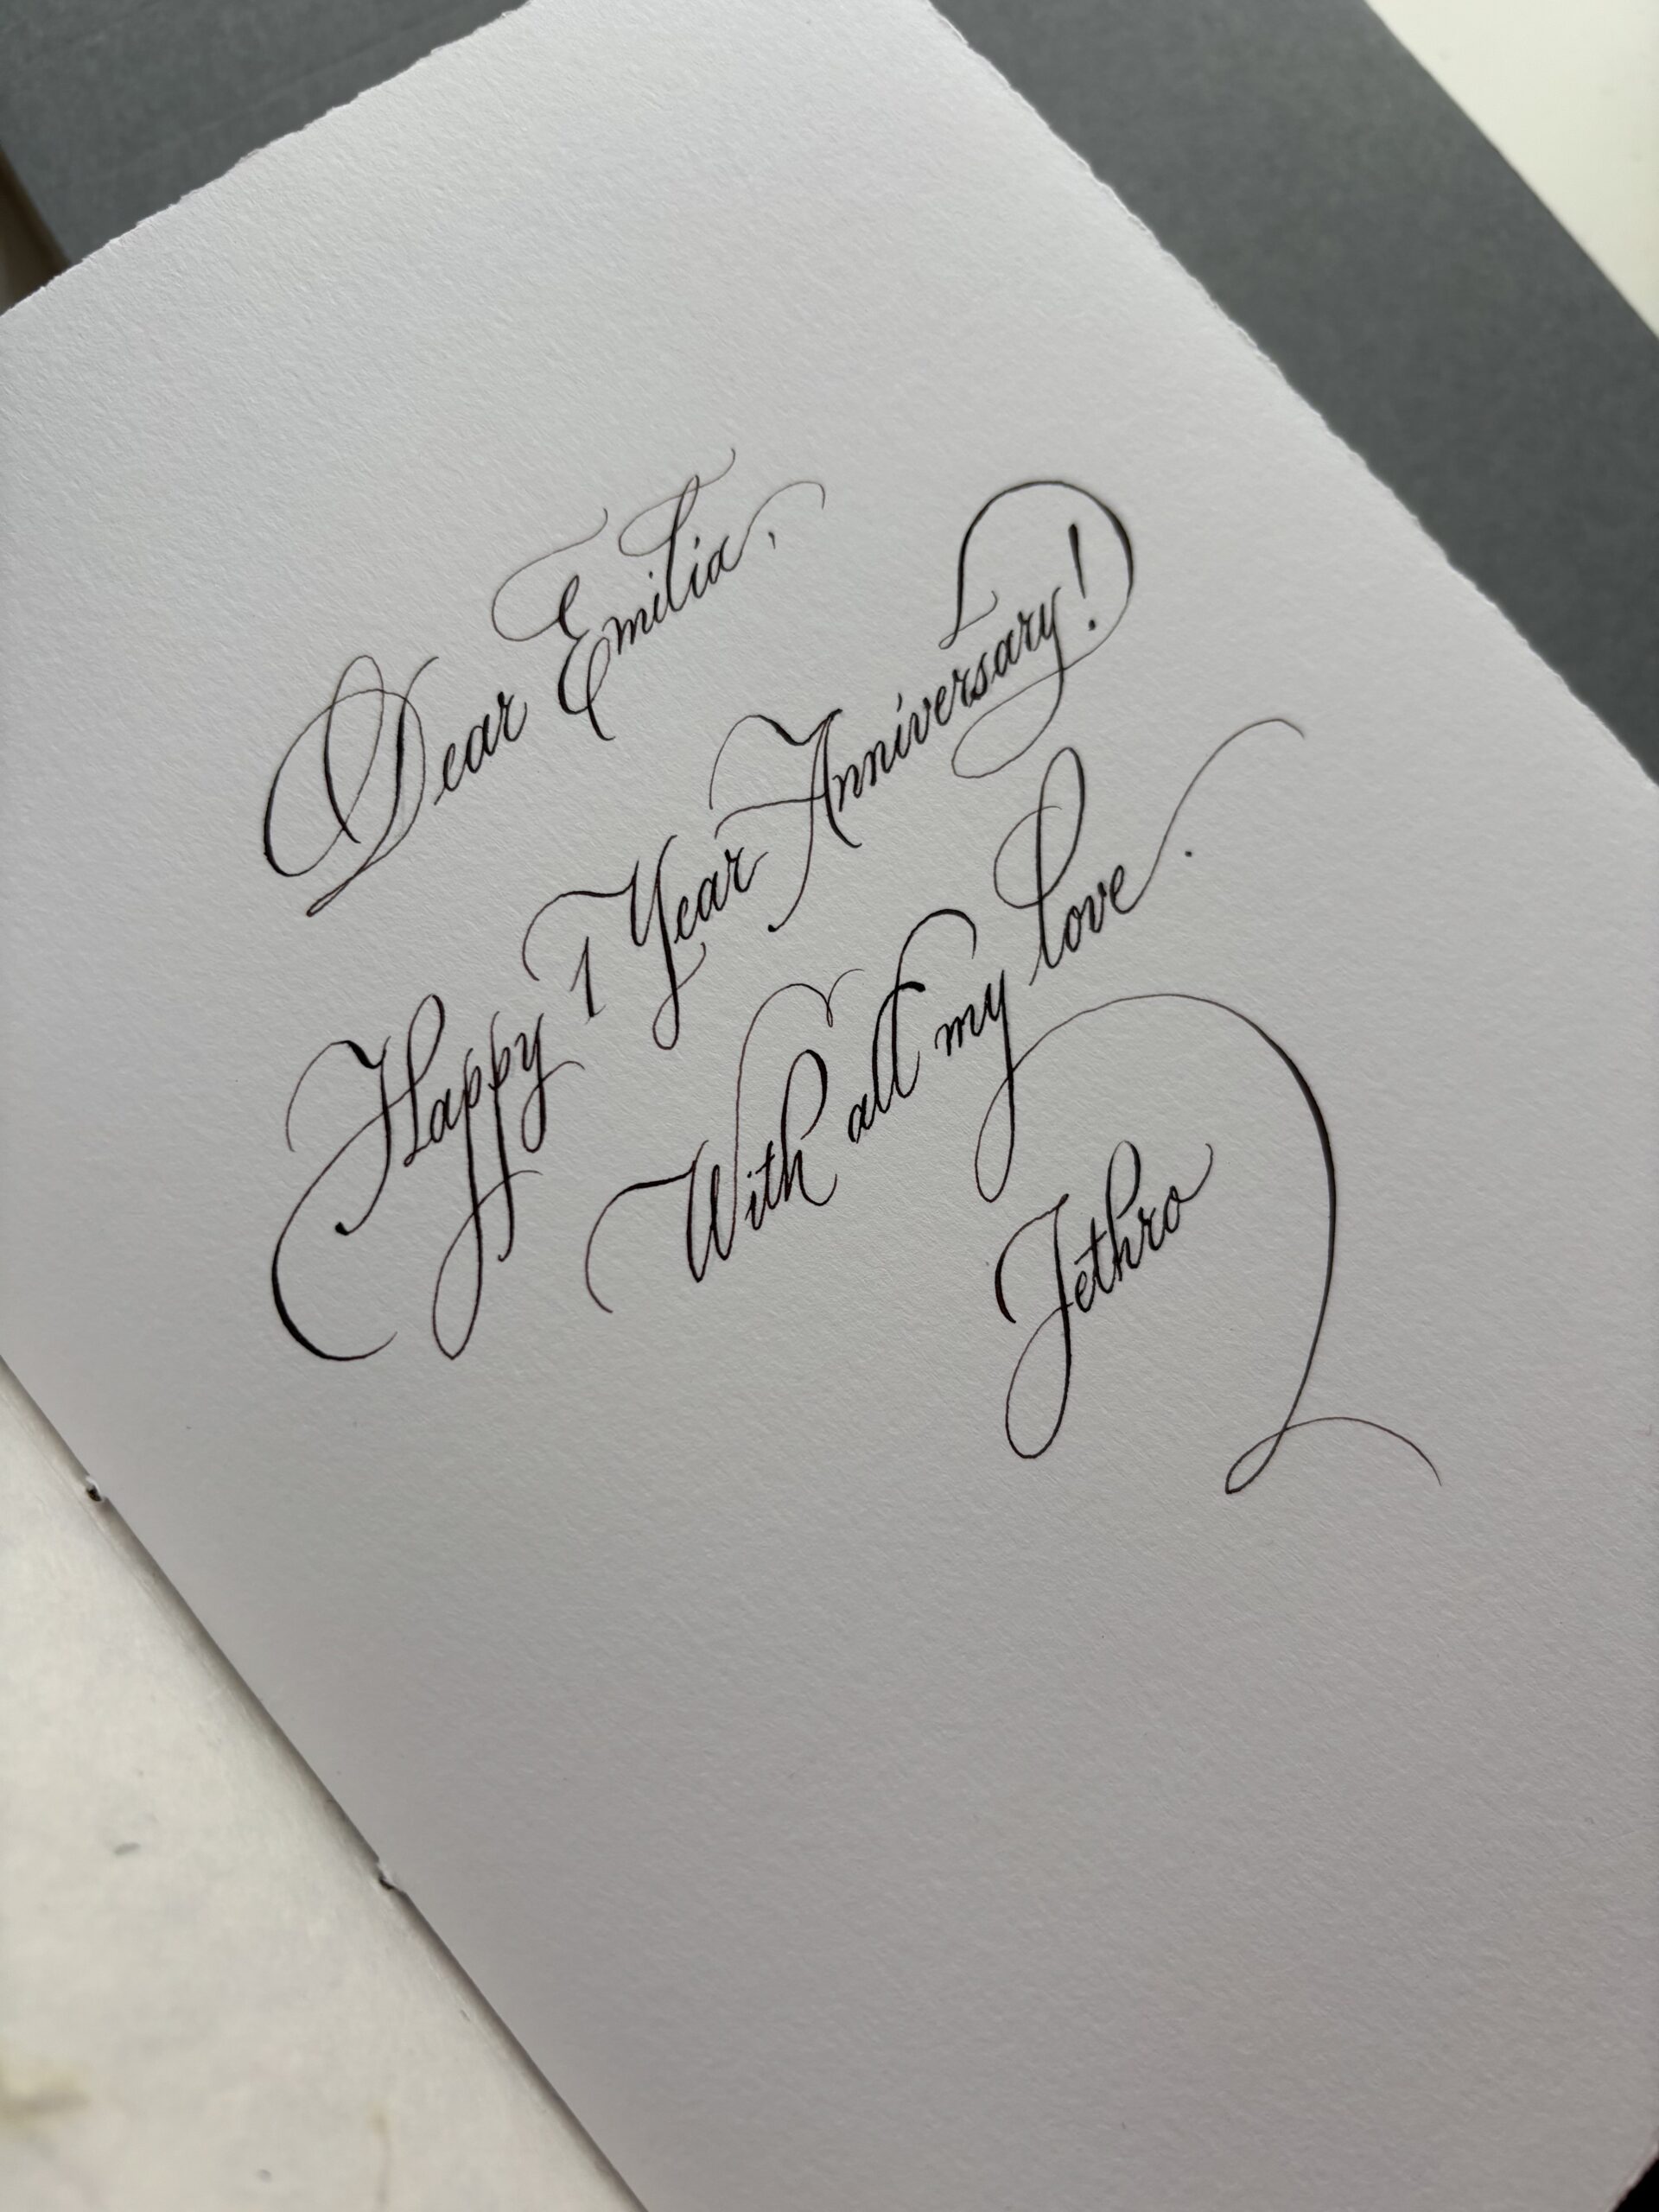 Dear Emilia,
Happy 1 Year Anniversary!
With all my love.
Jethro